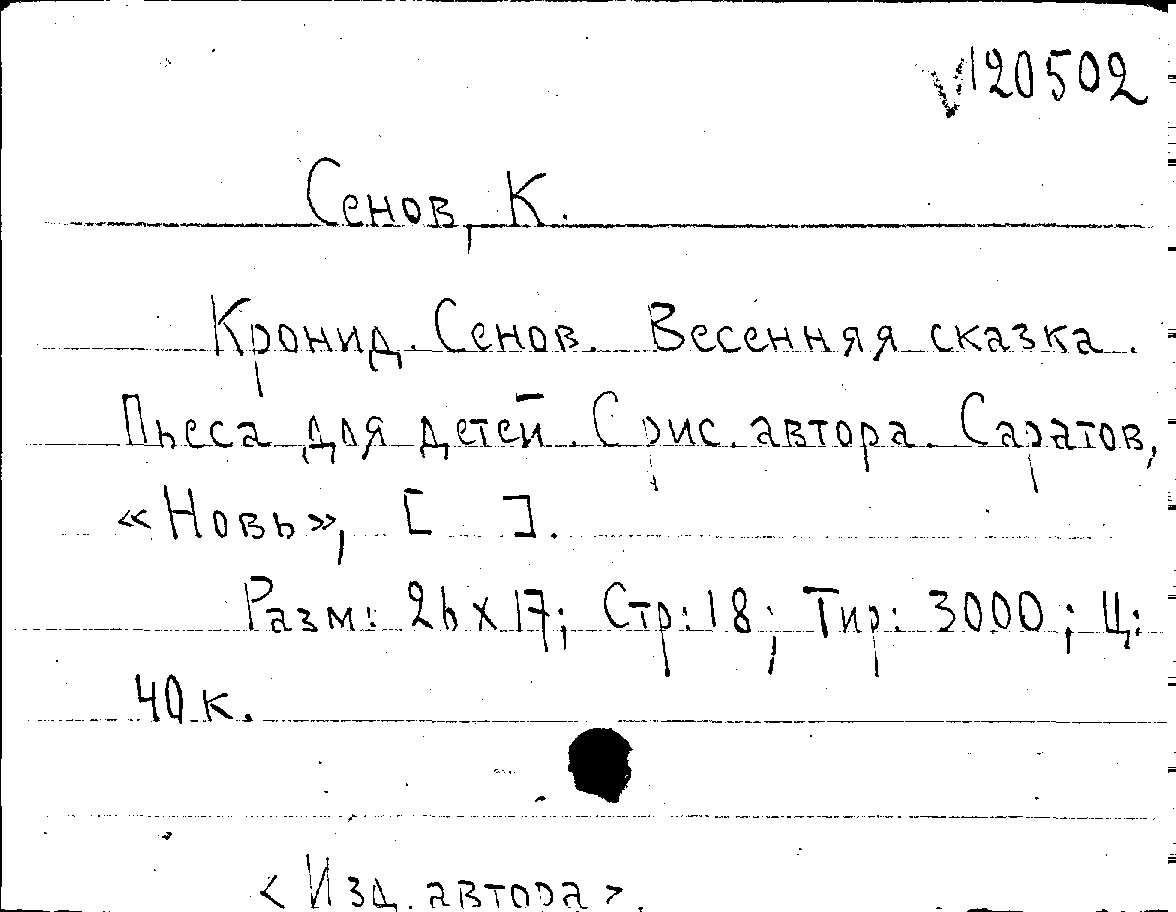 V120502
Сенов, К.
Кронид. Сенов. Весенняя сказка.
Пьеса для детей. С рис. автора. Саратов,
«Новь», [ ].
Разм: 26х17; Стр: 18; Тир: 3000; Ц:
40 к.
<Изд. автора>.